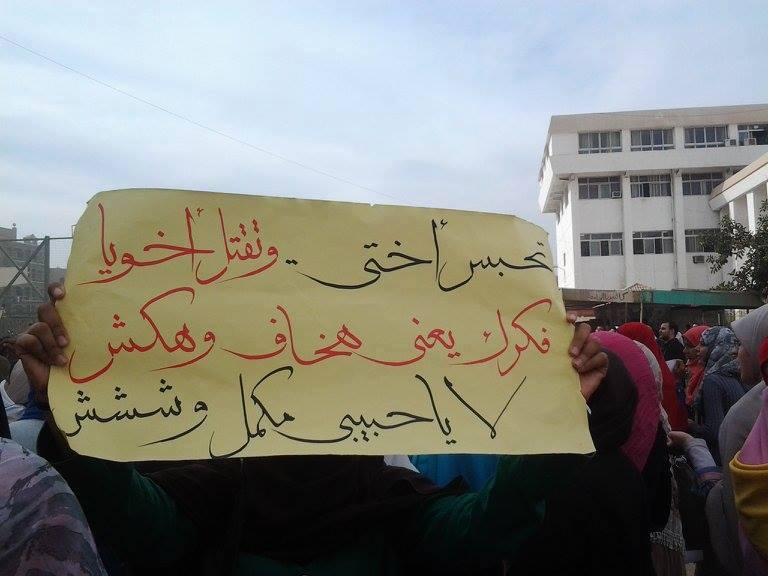 تحبس أختى .. وتقتل أخويا
فكرك يعنى هخاف وهكش
لا يا حبيبى مكمل وششش